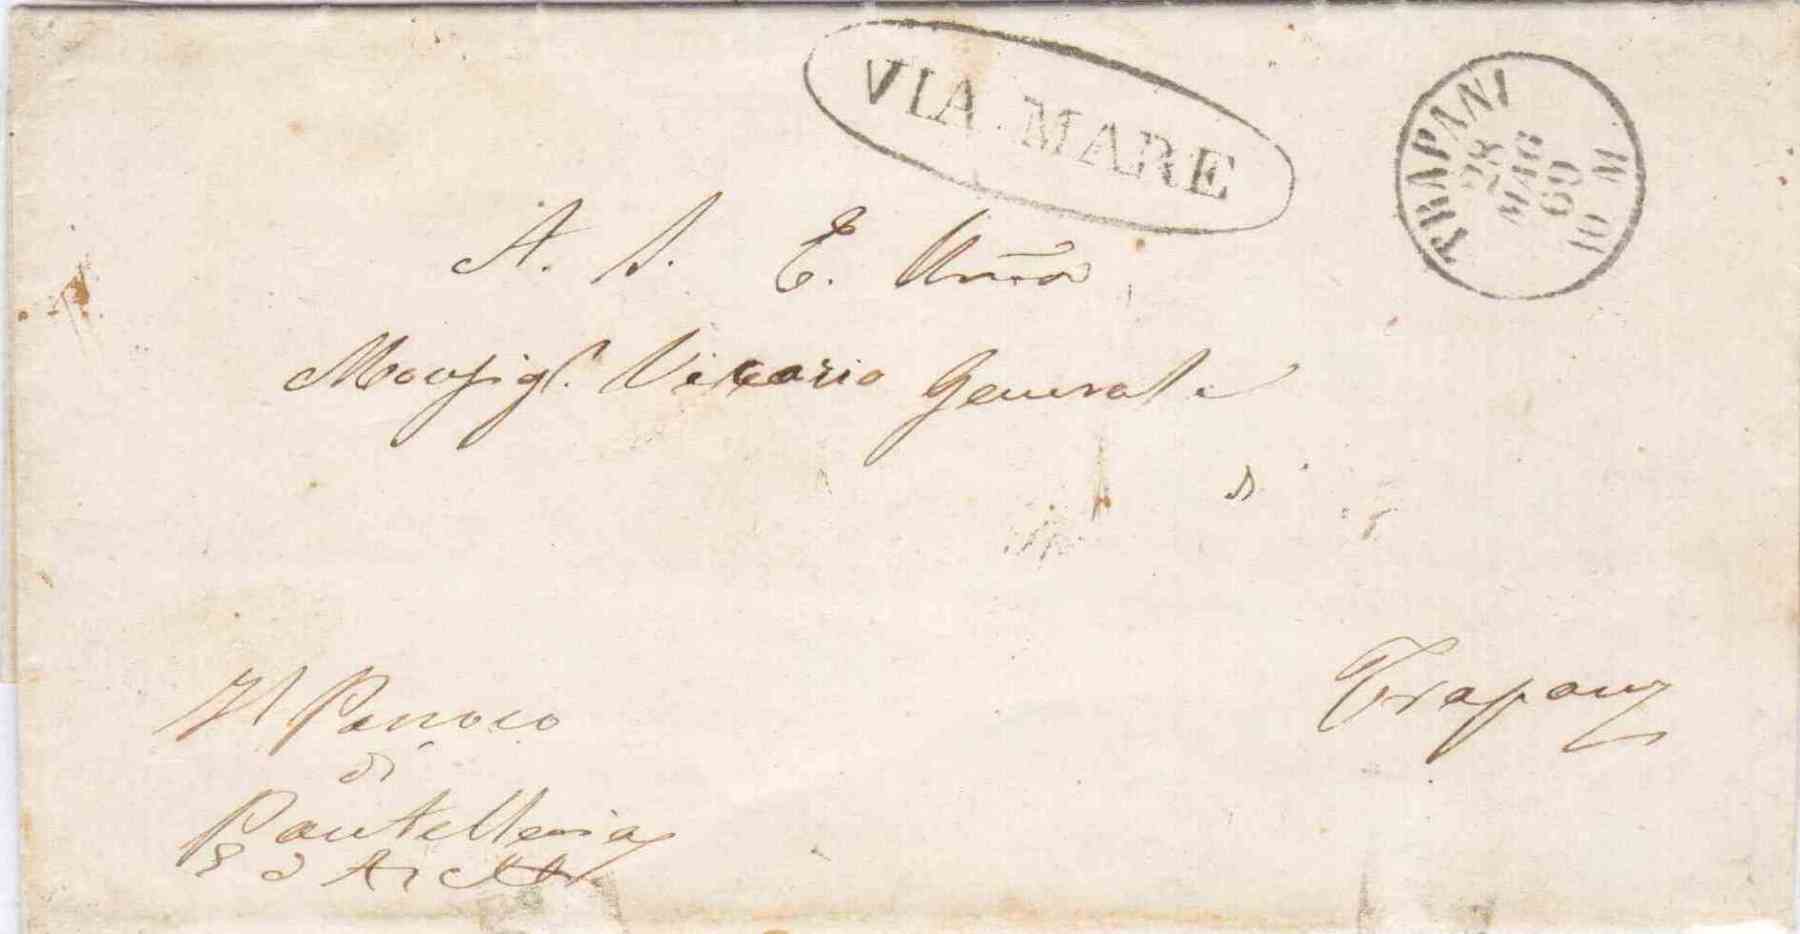 VIA MARE
TRAPANI
28
MAG
69
10 M
A. S. E. Rma
Monsigr. Vicario Generale
di
Trapani
Il Parroco
di
Pantelleria